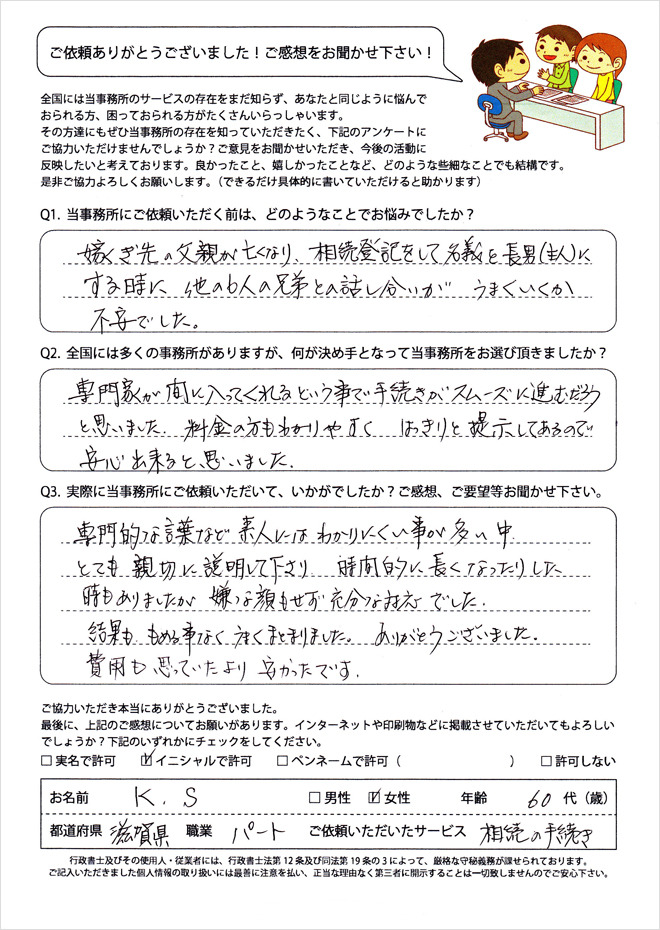 ご依頼ありがとうございました！ご感想をお聞かせ下さい！
全国には当事務所のサービスの存在をまだ知らず、あなたと同じように悩んで
おられる方、困っておられる方がたくさんいらっしゃいます。
その方達にもぜひ当事務所の存在を知っていただきたく、下記のアンケートに
ご協力いただけませんでしょうか？ご意見をお聞かせいただき、今後の活動に
反映したいと考えております。良かったこと、嬉しかったことなど、どのような些細なことでも結構です。
是非ご協力よろしくお願いします。（できるだけ具体的に書いていただけると助かります）
Q1. 当事務所にご依頼いただく前は、どのようなことでお悩みでしたか？
嫁ぎ先の父親が亡くなり、相続登記をして名義を長男(主人)に
する時に 他の6人の兄弟との話し合いが うまくいくか
不安でした。
Q2. 全国には多くの事務所がありますが、何が決め手となって当事務所をお選び頂きましたか？
専門家が間に入ってくれるという事で手続きがスムーズに進むだろう
と思いました。料金の方もわかりやすく はっきりと提示してあるので
安心出来ると思いました。
Q3. 実際に当事務所にご依頼いただいて、いかがでしたか？ご感想、ご要望等お聞かせ下さい。
専門的な言葉など 素人にはわかりにくい事が多い中
とても 親切に説明して下さり 時間的に長くなったりした
時もありましたが 嫌な顔もせず 充分な対応でした。
結果も もめる事なく うまくまとまりました。 ありがとうございました。
費用も思っていたより 安かったです。
ご協力いただき本当にありがとうございました。
最後に、上記のご感想についてお願いがあります。インターネットや印刷物などに掲載させていただいてもよろしい
でしょうか？下記のいずれかにチェックをしてください。
□ 実名で許可 ☑ イニシャルで許可 □ ペンネームで許可（ ） □ 許可しない
お名前 K.S □ 男性 ☑ 女性 年齢 60 代（歳）
都道府県 滋賀県 職業 パート ご依頼いただいたサービス 相続の手続き
行政書士及びその使用人・従業者には、行政書士法第12条及び同法第19条の3によって、厳格な守秘義務が課せられております。
ご記入いただきました個人情報の取り扱いには最善に注意を払い、正当な理由なく第三者に開示することは一切致しませんのでご安心下さい。